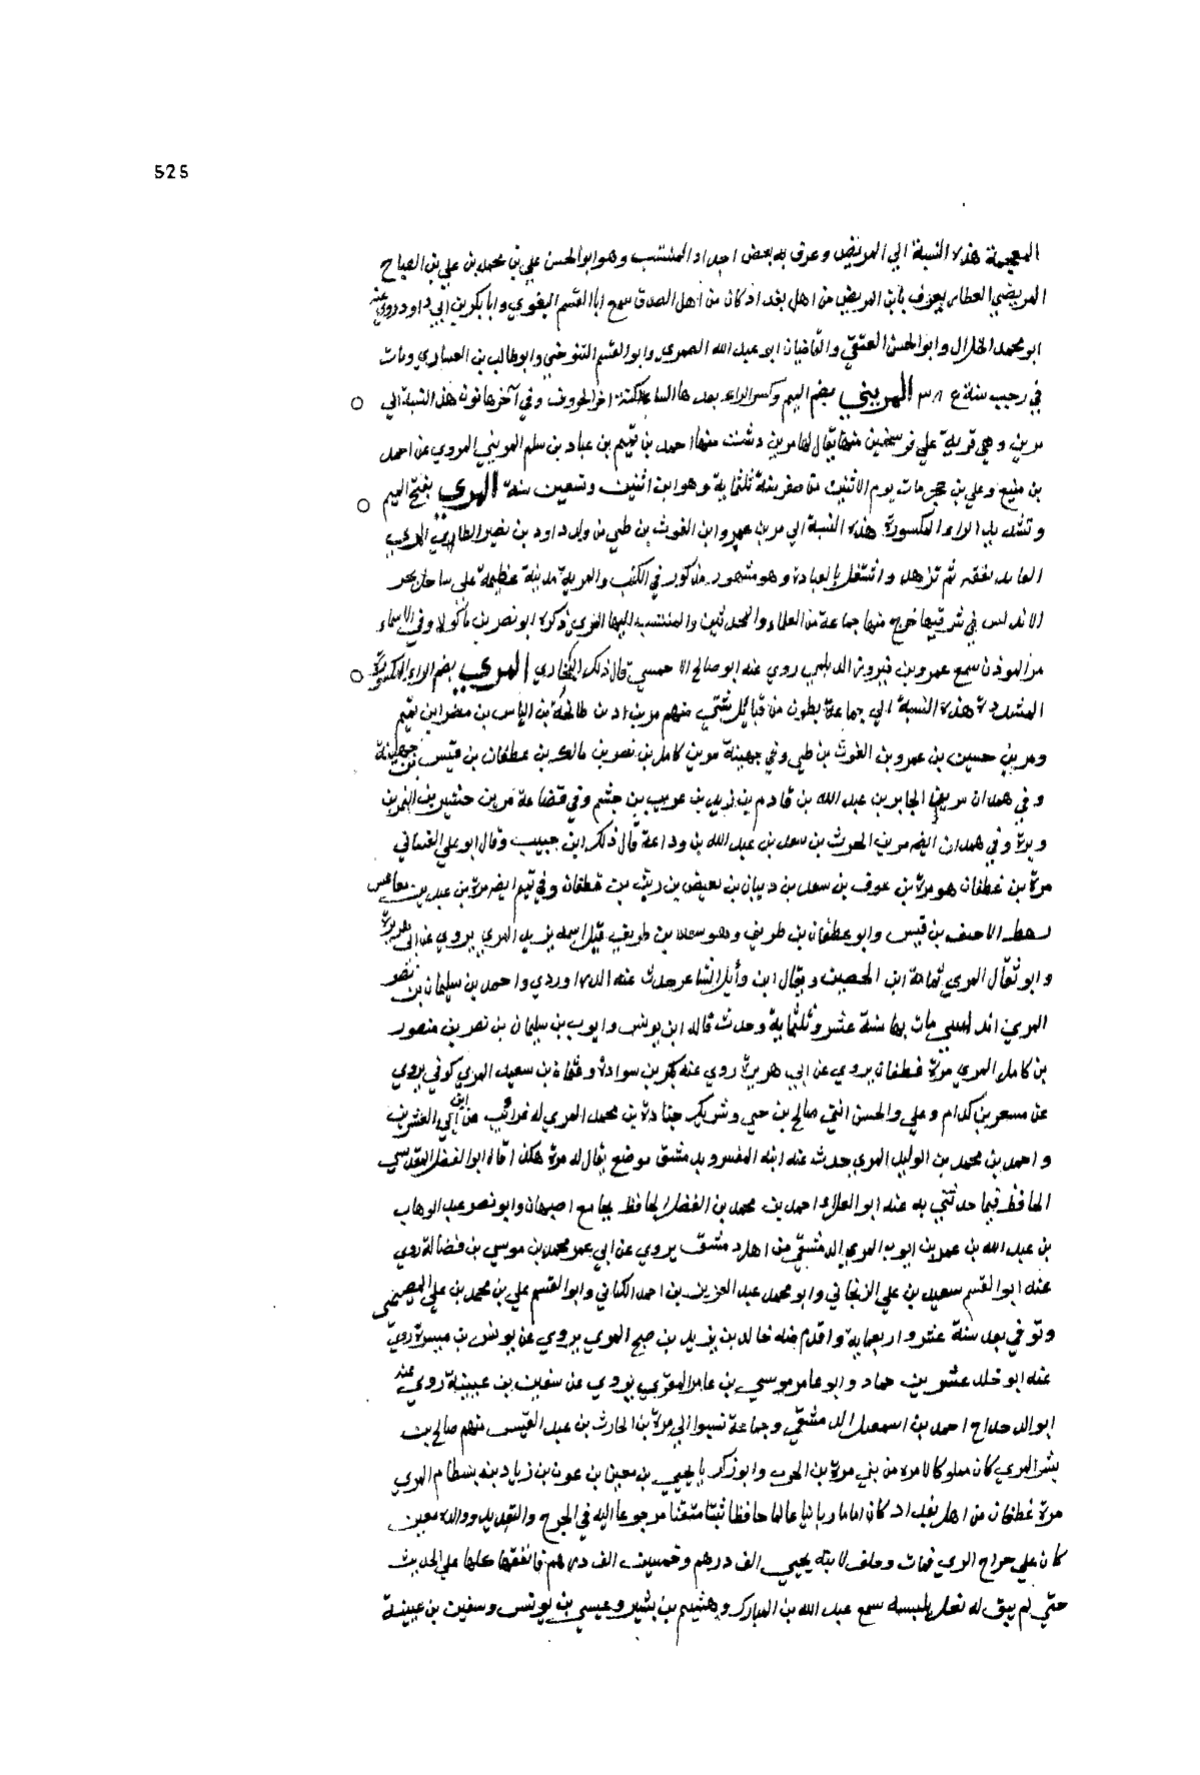 525
المعجمة هذه النسبة الي المريض وعرف به بعض اجداد المنتسب وهو ابو الحسن علي بن محمد بن علي بن الصباح
المريضي العطار يعرف بابن المريض من اهل بغداد كان من اهل الصدق سمع ابا القسم البغوي وابا بكر بن ابي داود روي عنه
ابو محمد الخلال وابو الحسن العتقي والقاضيان ابو عبد الله الصمري وابو القسم التنوخي وابو طالب بن العشاري ومات
في رجب سنة المريني بضم الميم وكسر الراء بعدها الياء اخر الحروف وفي آخرها نون هذه النسبة الي
مرين وهي قرية علي فرسخين منها يقال لها مرين دشت منها احمد بن تميم بن عباد بن سلم المريني المروي عن احمد
بن منيع وعلي بن حجر مات يوم الاثنين من صفر سنة ثلثماية وهو ابن اثنين وتسعين سنة المري بفتح الميم
وتشديد الراء المكسورة هذه النسبة الي مر بن عمرو ابن الغوث بن طي من ولده داود بن نصير الطاري المري
العابد تفقه ثم تزهد واشتغل بالعبادة وهو مشهور مذكور في الكتب والمرية مدينة عظيمة علي ساحل بحر
الاندلس في شرقيها خرج منها جماعة من العلماء والمحدثين والمنتسب اليها الذي ذكره ابو نصر بن ماكولا وفي الاسماء
مر الموذن سمع عمرو بن فيروز الديلمي روي عنه ابو صالح الاحمسي قال ذلك البخاري المري بضم الراء المكسورة
المشددة هذه النسبة الي جماعة بطون من قبايل شتي منهم مر بن اد بن طابخة بن الياس بن مضر ابن تميم
ومر بن حسين بن عمرو بن الغوث بن طي وفي جهينة مر بن كامل بن نصر بن مالك بن غطفان بن قيس بن جهينة
وفي همدان الجابر بن عبد الله بن قادم بن زيد بن عريب بن جشم وفي قضاعة مر بن خشين بن النمر بن
وبرة وفي همدان ايضه مر بن الحرث بن سعد بن عبد الله بن وداعة قال ذلك ابن حبيب وقال ابو علي الغساني
مرة بن غطفان هو مرة بن عوف بن سعد بن ذبيان بن بغيض بن ريث بن غطفان وفي تميم ايضه مرة بن عبد بن مقاعس
رهط الاحنف بن قيس وابو غطفان بن طريف وهو سعد بن طريف قيل اسمه يزيد المري يروي عن ابي هريرة
وابو ثفال المري ثمامة ابن الحصين ويقال ابن وايل الشاعر حدث عنه الدراوردي واحمد بن سليمان بن نصر
المري اندلسي مات بها سنة عشر وثلثماية وحدث قاله ابن يونس وايوب بن سليمان بن نصر بن منصور
بن كامل المري مرة غطفان يروي عن ابي هريرة روي عنه بكر بن سوادة وعثمان بن سعيد المري كوفي يروي
عن مسعر بن كدام وعلي والحسن ابني صالح بن حي وشريك جنادة بن محمد المري له غرايب عن ابن ابي العشرين
واحمد بن محمد بن الوليد المري حدث عنه ابنه المفسر وبدمشق موضع يقال له مرة هكذا قال ابو الفضل المقدسي
الحافظ فيما حدثني به عنه ابو العلاء احمد بن محمد بن الفضل الحافظ بجامع اصبهان وابو نصر عبد الوهاب
بن عبد الله بن عمر بن ايوب المري الدمشقي من اهل دمشق يروي عن ابي عمر محمد بن موسي بن فضالة روي
عنه ابو القسم سعيد بن علي الزنجاني وابو محمد عبد العزيز بن احمد الكتاني وابو القسم علي بن محمد بن علي المصيصي
وتوفي بعد سنة عشر واربعماية واقدم منه خالد بن يزيد بن صبح المري يروي عن يونس بن ميسرة روي
عنه ابو خلد عشر بن حماد وابو عامر موسي بن عامر المري يروي عن سفين بن عيينة روي عنه
ابو الدحداح احمد بن اسمعيل الدمشقي وجماعة نسبوا الي مرة بن الحارث بن عبد القيس منهم صالح بن
بشر المري كان مملوكا لامراة من بني مرة بن الحرث وابو زكريا يحيي بن معين بن عون بن زياد بن بسطام المري
مرة غطفان من اهل بغداد كان اماما ربانيا عالما حافظا ثبتا متقنا مرجوعا اليه في الجرح والتعديل ووالده معين
كان علي خراج الري فمات وخلف لابنه يحيي الف الف درهم وخمسين الف درهم فانفقها كلها علي الحديث
حتي لم يبق له نعل يلبسه سمع عبد الله بن المبارك وهشيم بن بشير وعيسي بن يونس وسفين بن عيينة